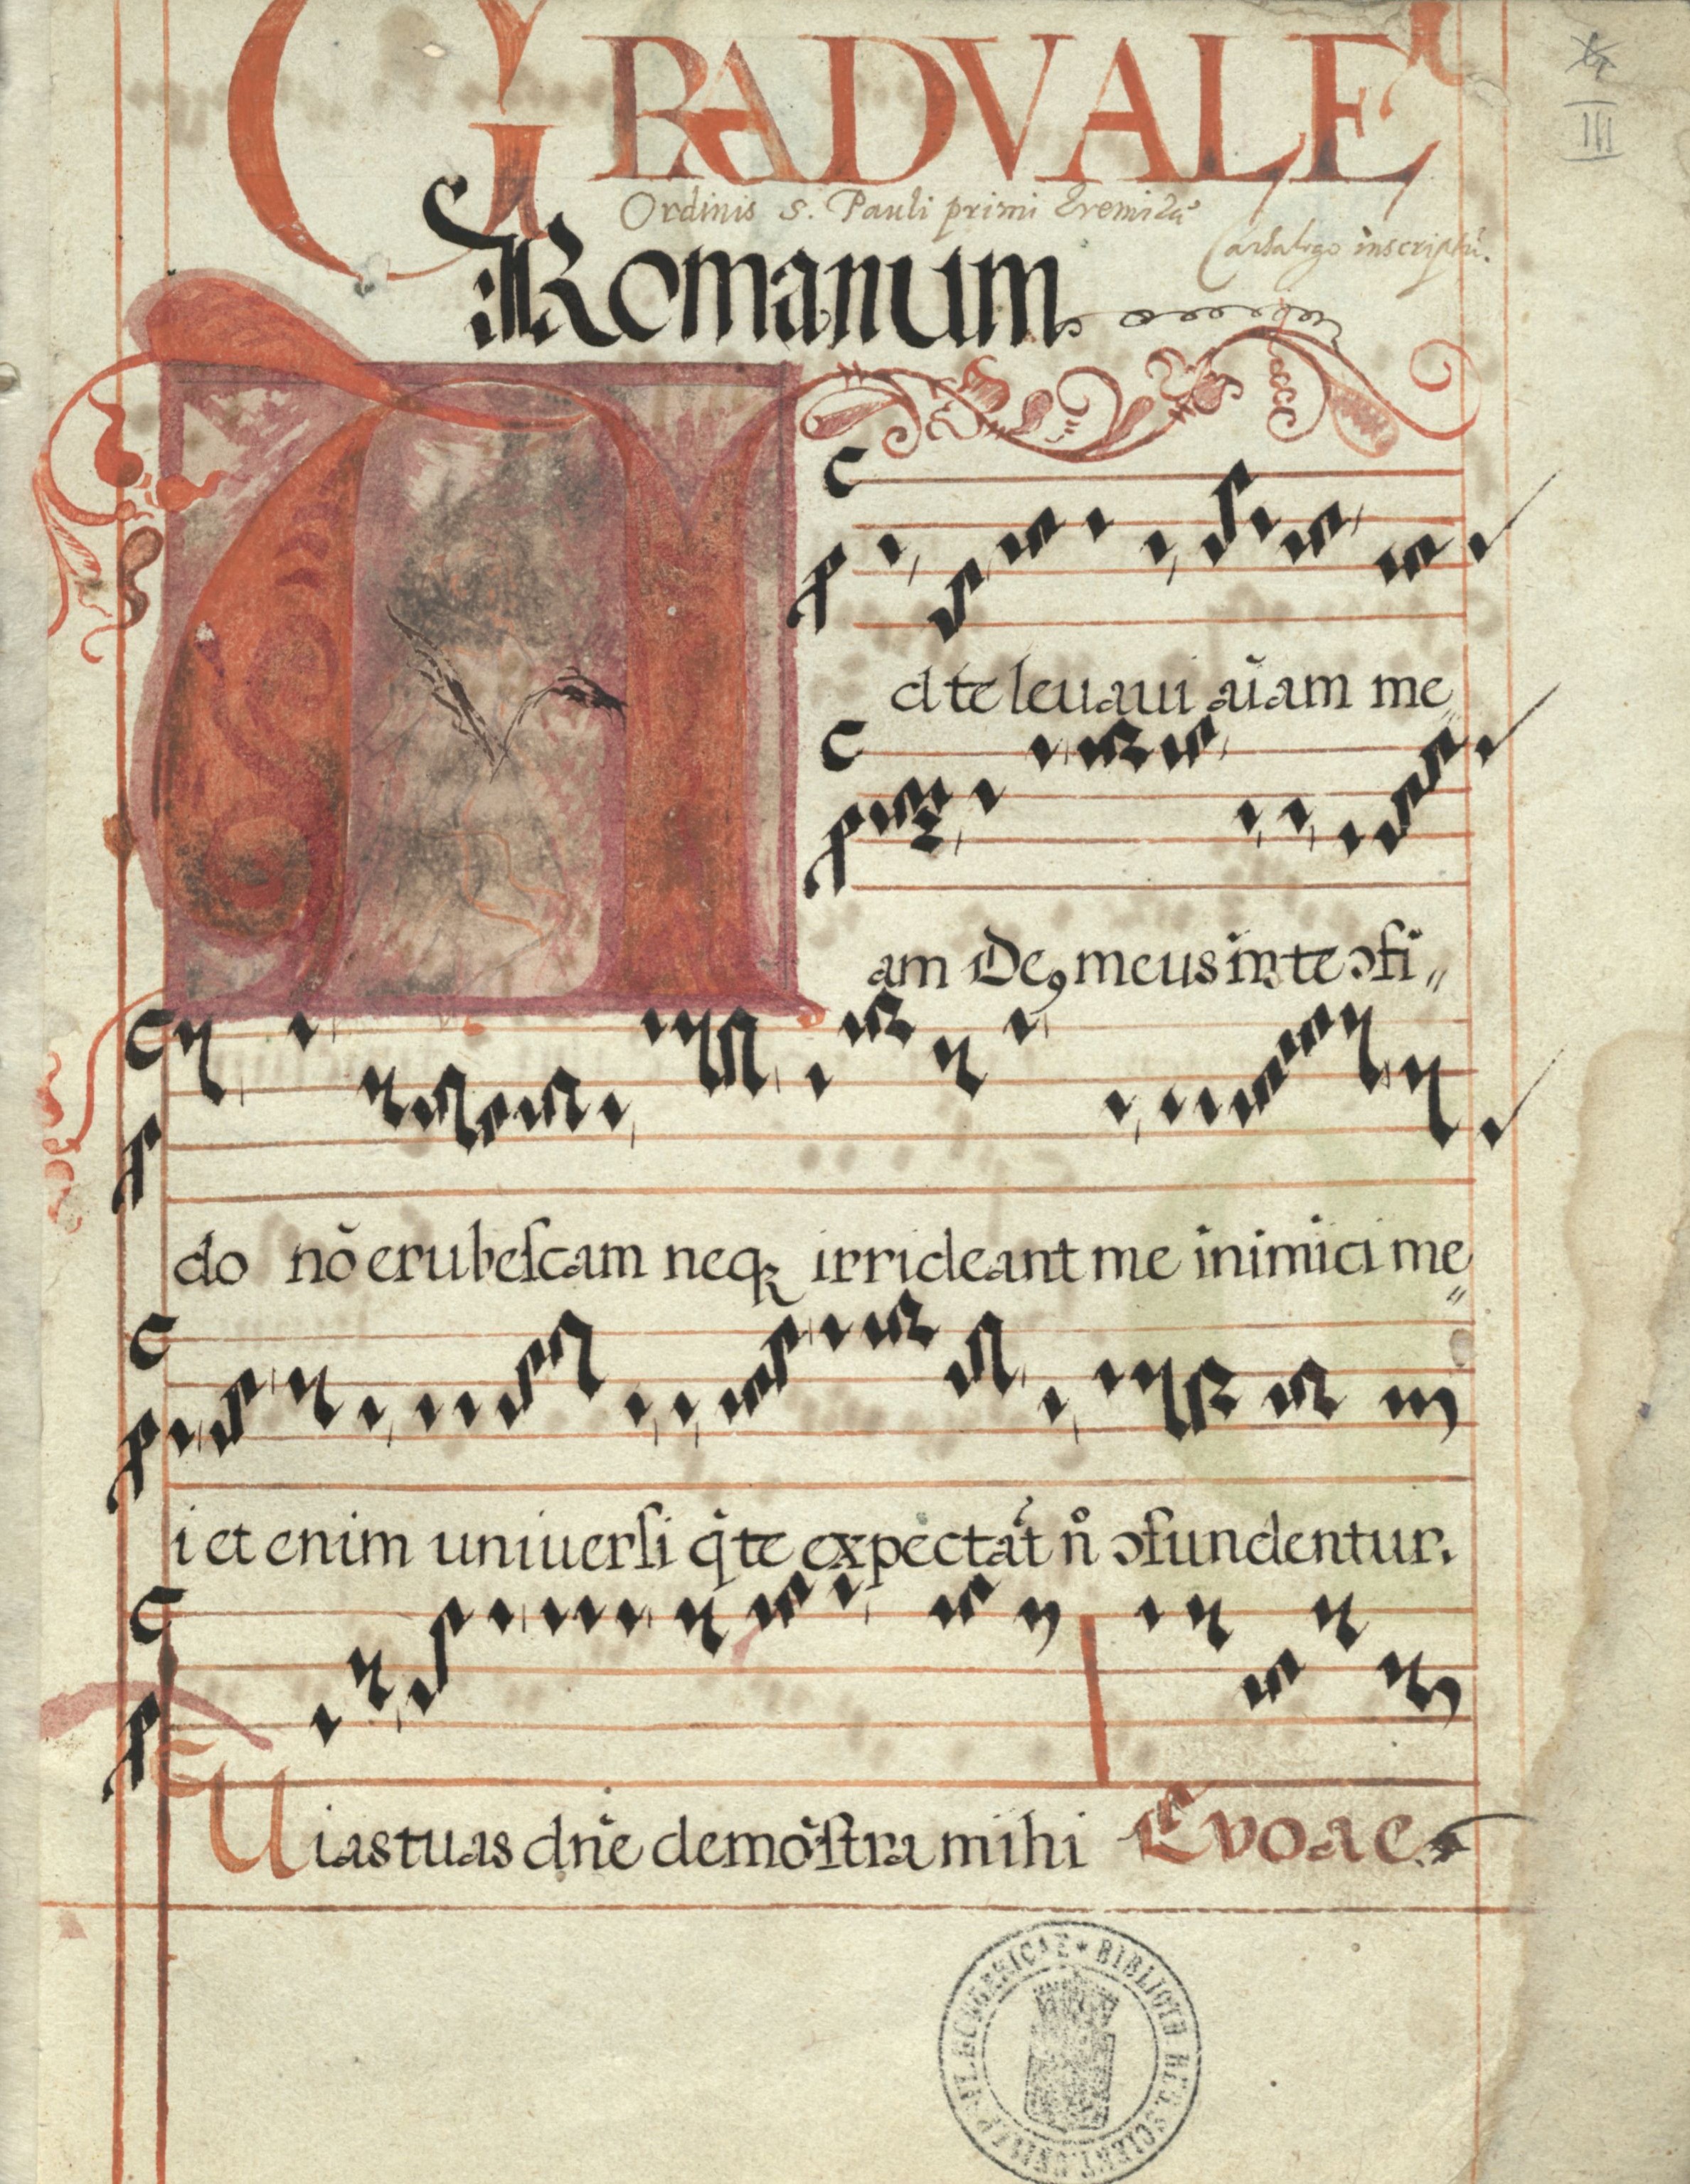 GRADVALE
Ordinis S. Pauli primi Eremitae
Catalogo inscriptũ.
Romanum
Ad te leuaui aĩam me
am Deꝯ meus in te ɔfi〃
do nõ erubeſcam neqꝫ irrideant me inimici me〃
i et enim uniuerſi q̇ te expectãt n̊ ɔfundentur.
Uias tuas dñe demõſtra mihi Evoae
BIBLIOTH
HUNGARICAE
III